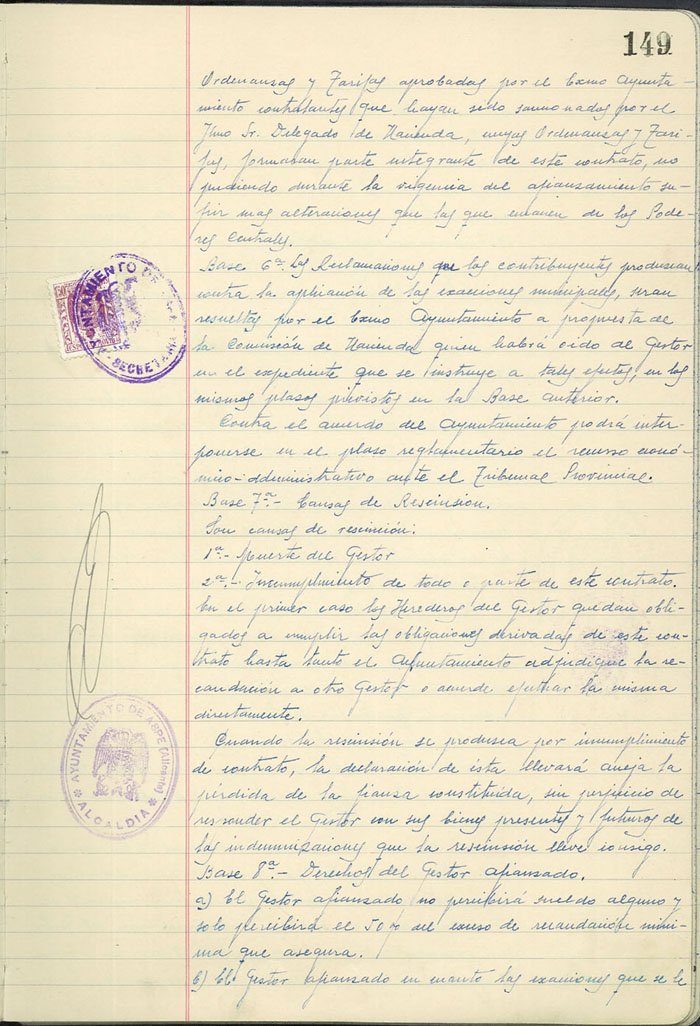 149
Ordenanzas y Tarifas aprobadas por el Exmo Ayunta-
miento contratantes que hayan sido sancionadas por el
Ilmo Sr. Delegado de Hacienda, cuyas Ordenanzas y Tari-
fas, formaban parte integrante de este contrato, no
pudiendo durante la vigencia del afianzamiento su-
frir mas alteraciones que las que emanen de los Pode-
res Centrales.
Base 6ª. Las Reclamaciones que los contribuyentes produzcan
contra la aplicación de las exacciones municipales, seran
resueltas por el Exmo Ayuntamiento a propuesta de
la Comisión de Hacienda quien habrá oido de Gestor
en el expediente que se instruye a tales efectos, en los
mismos plasos previstos en la Base anterior.
Contra el acuerdo del Ayuntamiento podrá inter-
ponerse en el plaso reglamentario el recurso econó-
mico-administrativo ante el Tribunal Provincial.
Base 7ª.- Causas de Rescinsion.
Son causas de rescinción:
1ª.- Muerte del Gestor
2ª.- Incumplimiento de todo o parte de este contrato.
En el primer caso los Herederos del Gestor quedan obli-
gados a cumplir las obligaciones derivadas de este con-
trato hasta tanto el Ayuntamiento adjudique la re-
caudación a otro Gestor o acuerde efectuar la misma
directamente.
Cuando la rescinsión se produsca por incumplimiento
de contrato, la declaración de ésta llevará aneja la
pérdida de la fianza constituida, sin perjuicio de
responder el Gestor con sus bienes presentes y futuros de
las indemnizaciones que la rescinsión lleve consigo.
Base 8ª.- Derechos del Gestor afianzado.
a) El Gestor afianzado no percibirá sueldo alguno y
solo percibirá el 50% del exceso de recaudación míni-
ma que asegura.
b) El Gestor afianzado en cuanto las exacciones que se le
AYUNTAMIENTO DE
SECRETARIA
AYUNTAMIENTO DE ASPE (Alicante)
ALCALDIA